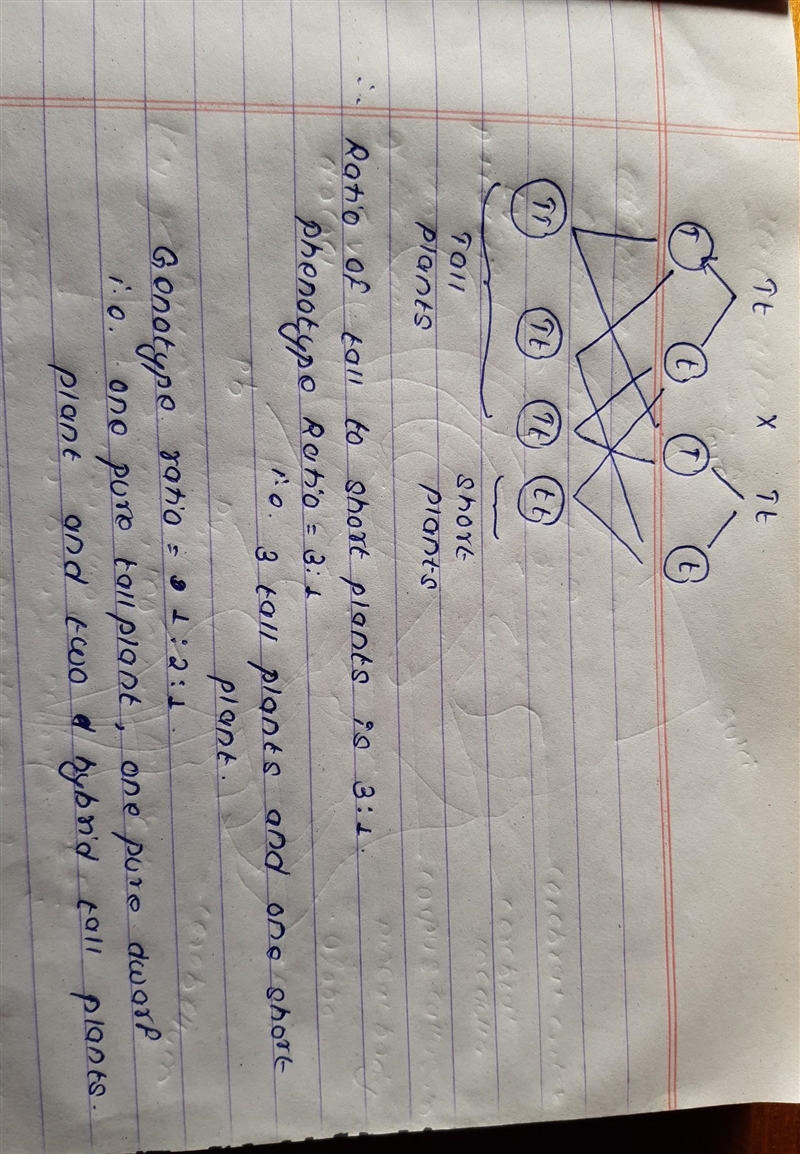 Tt x Tt
T t T t
TT Tt Tt tt
Tall short
plants plants
∴ Ratio of tall to short plants is 3:1.
phenotype Ratio = 3:1
i.e. 3 tall plants and one short
plant.
Genotype ratio = 1:2:1.
i.e. one pure tall plant, one pure dwarf
plant and two hybrid tall plants.